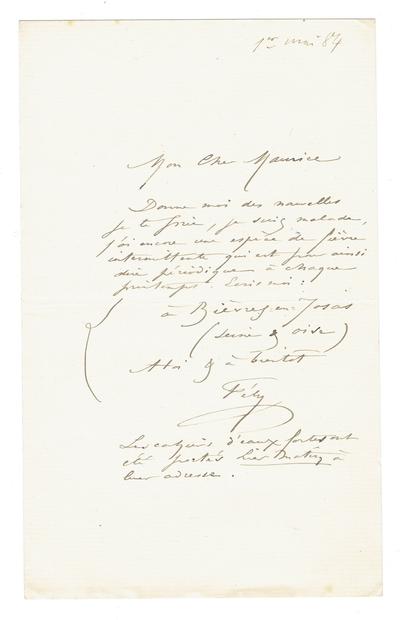 1er mai 84
Mon Cher Maurice
Donne moi des nouvelles
je te prie, je suis malade,
j'ai encore une espèce de fièvre
intermittente qui est pour ainsi
dire périodique à chaque
printemps. Ecris moi :
à Bièvres-en-Josas
(Seine & oise)
A toi & à bientôt
Fély
Les cahiers d'eaux fortes ont
été portés hier matin à
leur adresse.